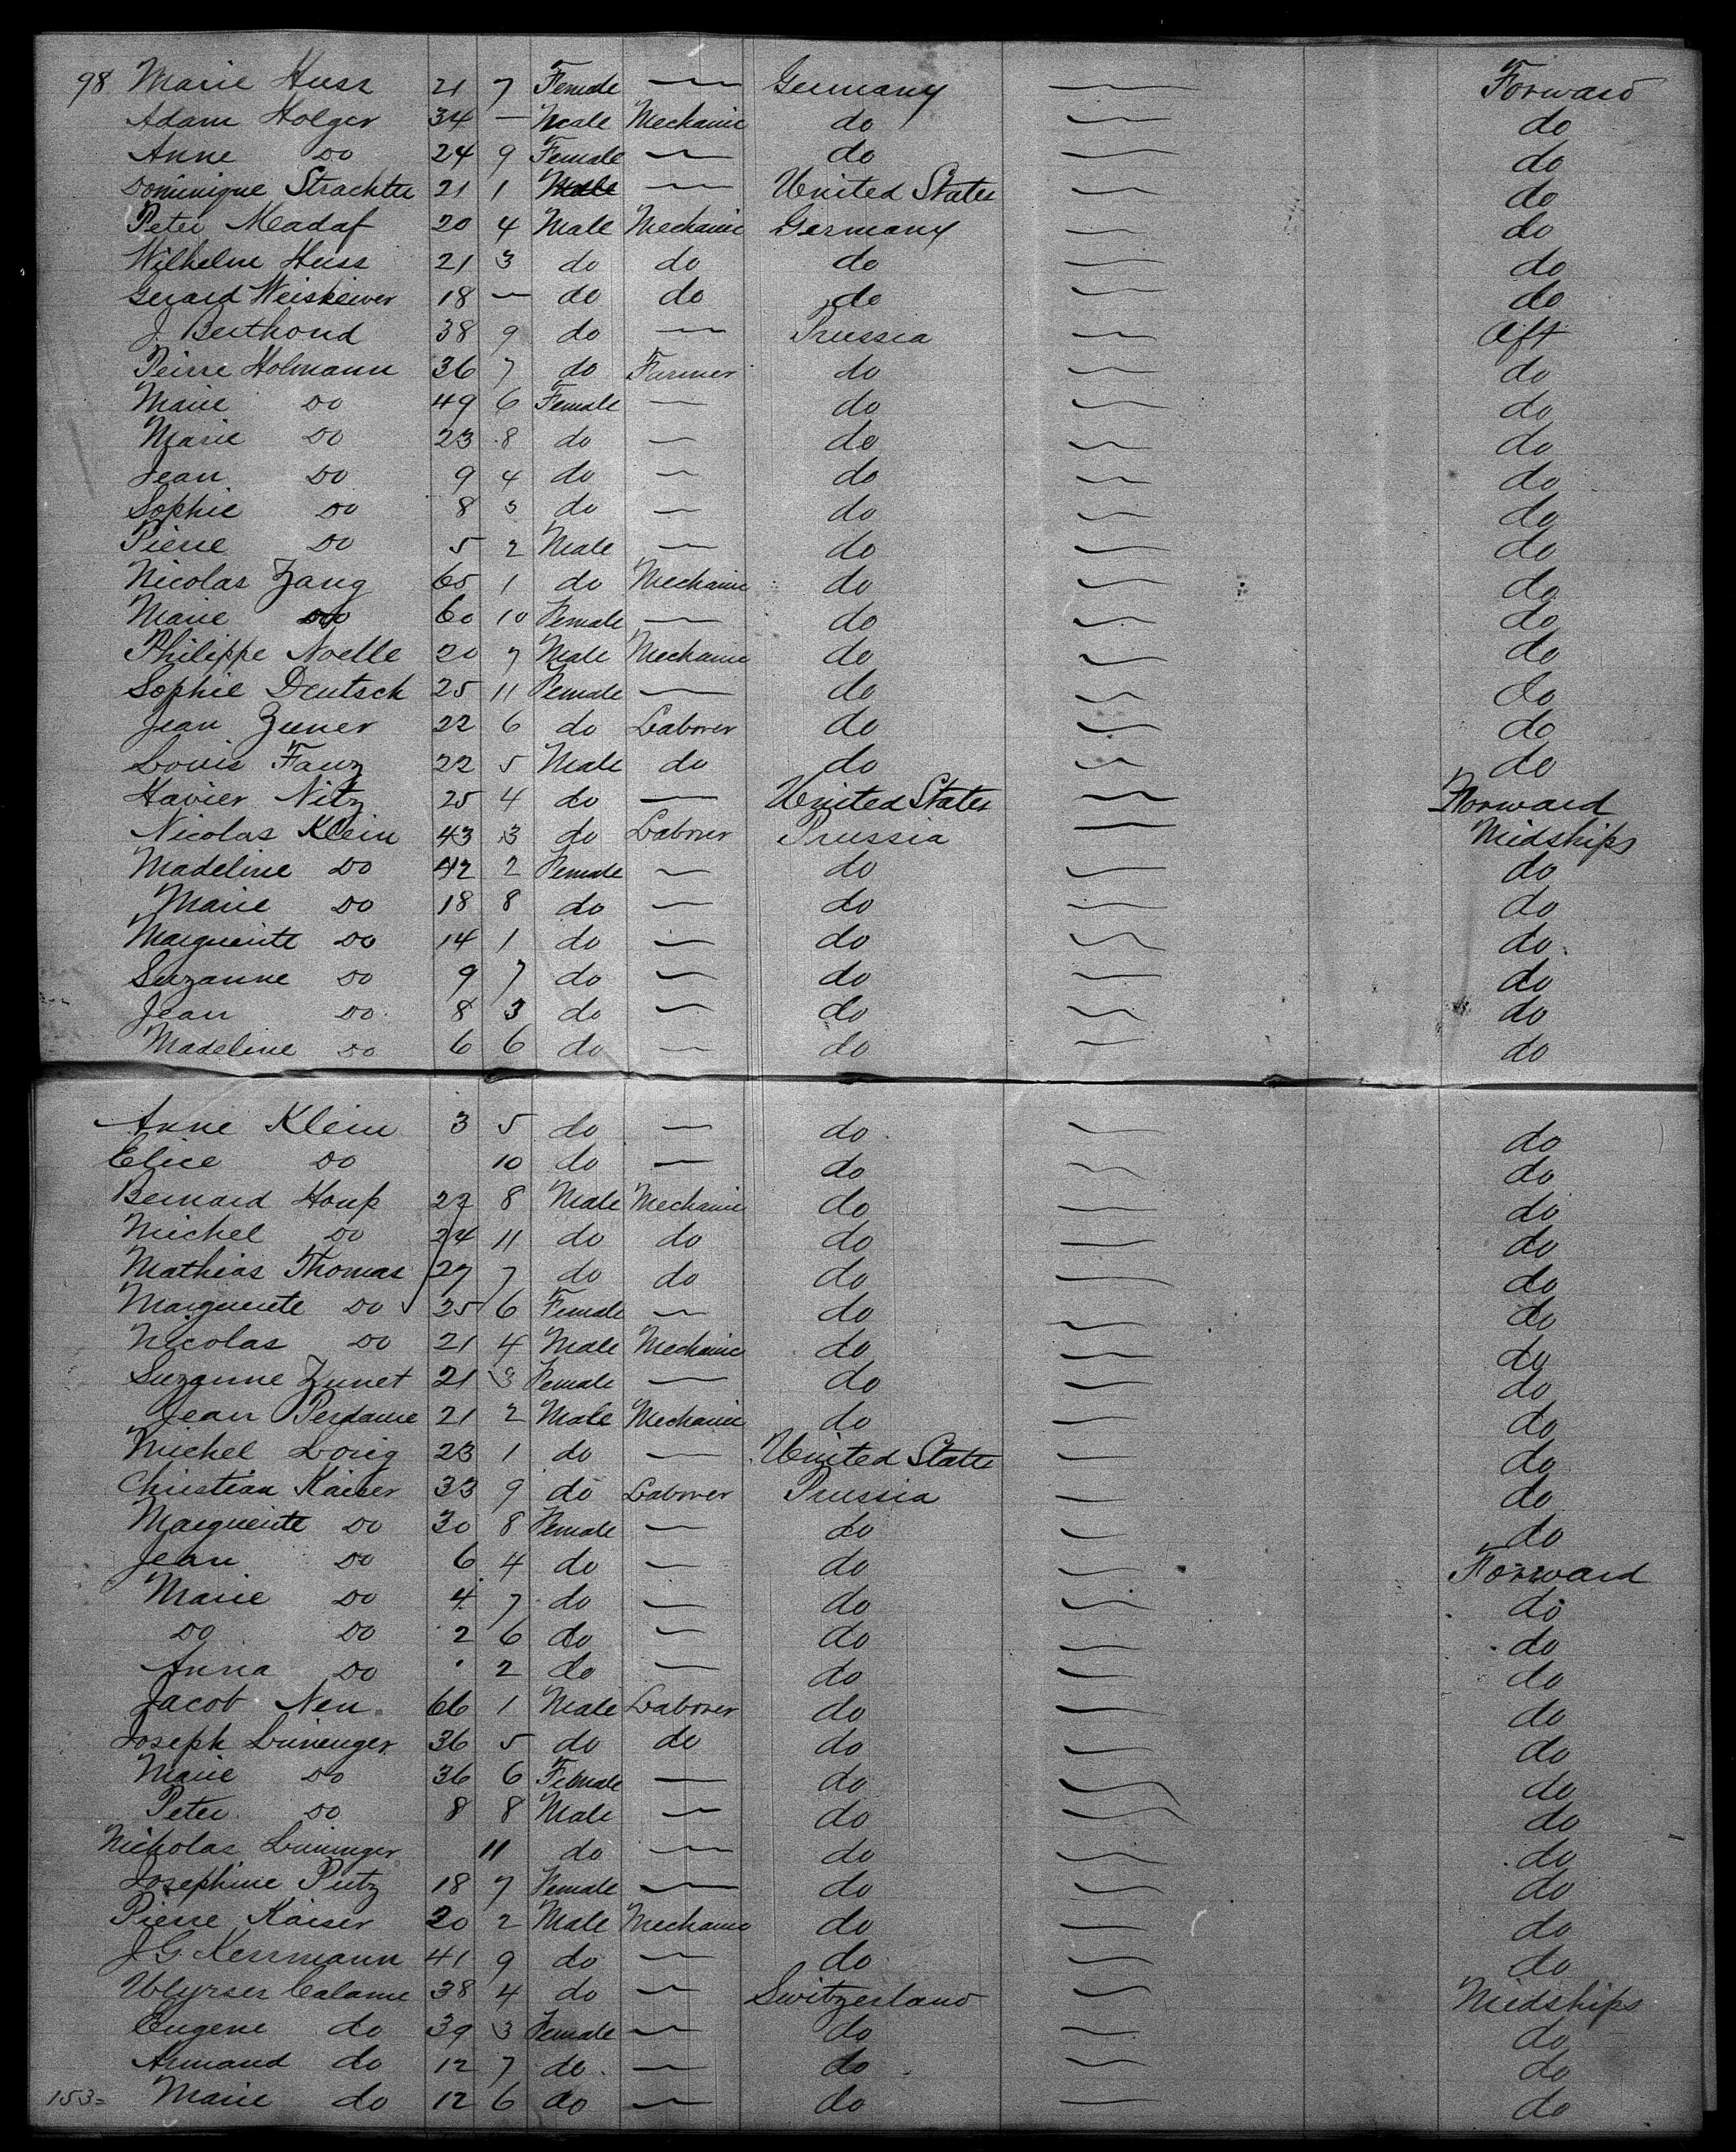 98 Marie Huss 21 7 Female — Germany — Forward
Adam Holger 34 — Male Mechanic do — do
Anne Do 24 9 Female — do — do
Dominique Strachtte 21 1 Male — United States — do
Peter Meadaf 20 4 Male Mechanic Germany — do
Wilhelm Huss 21 3 do do do — do
Gerard 18 — do do do — do
J. Berthond 38 9 do — Prussia — Aft
Peirre Holmann 36 7 do Farmer do — do
Marie Do 49 6 Female — do — do
Marie Do 23 8 do — do — do
Jean Do 9 4 do — do — do
Sophie Do 8 3 do — do — do
Pierre Do 5 2 Male — do — do
Nicolas Zang 65 1 do Mechanic do — do
Marie Do 60 10 Female — do — do
Philippe Noelle 20 7 Male Mechanic do — do
Sophie Deutsch 25 11 Female — do — do
Jean Zuner 22 6 do Laborer do — do
Louis Fauz 22 5 Male do do — do
Xavier Nitz 25 4 do — United States — Forward
Nicolas Klein 43 3 do Laborer Prussia — Midships
Madeline Do 42 2 Female — do — do
Marie Do 18 8 do — do — do
Marguerite Do 14 1 do — do — do
Suzanne Do 9 7 do — do — do
Jean Do 8 3 do — do — do
Madeline Do 6 6 do — do — do
Anne Klein 3 5 do — do — do
Elice Do 10 do — do — do
Bernard Houp 22 8 Male Mechanic do — do
Michel Do 24 11 do do do — do
Mathias Thomas 27 7 do do do — do
Marguerite Do 25 6 Female — do — do
Nicolas Do 21 4 Male Mechanic do — do
Suzanne Zunet 21 3 Female — do — do
Jean Perdame 21 2 Male Mechanic do — do
Michel Lorig 23 1 do — United States — do
Christian Kaiser 33 9 do Laborer Prussia — do
Marguerite Do 30 8 Female — do — do
Jean Do 6 4 do — do — Forward
Marie Do 4 7 do — do — do
Do Do 2 6 do — do — do
Anna Do 2 do — do — do
Jacob Neu 66 1 Male Laborer do — do
Joseph Luninger 36 5 do do do — do
Marie Do 36 6 Female — do — do
Peter Do 8 8 Male — do — do
Nickolas Luninger 11 do — do — do
Josephine Putz 18 7 Female — do — do
Pierre Kaiser 20 2 Male Mechanic do — do
J G Kerrmann 41 9 do — do — do
Ulyrses Calame 38 4 do — Switzerland — Midships
Eugene do 39 3 Female — do — do
Armand do 12 7 do — do — do
153= Marie do 12 6 do — do — do